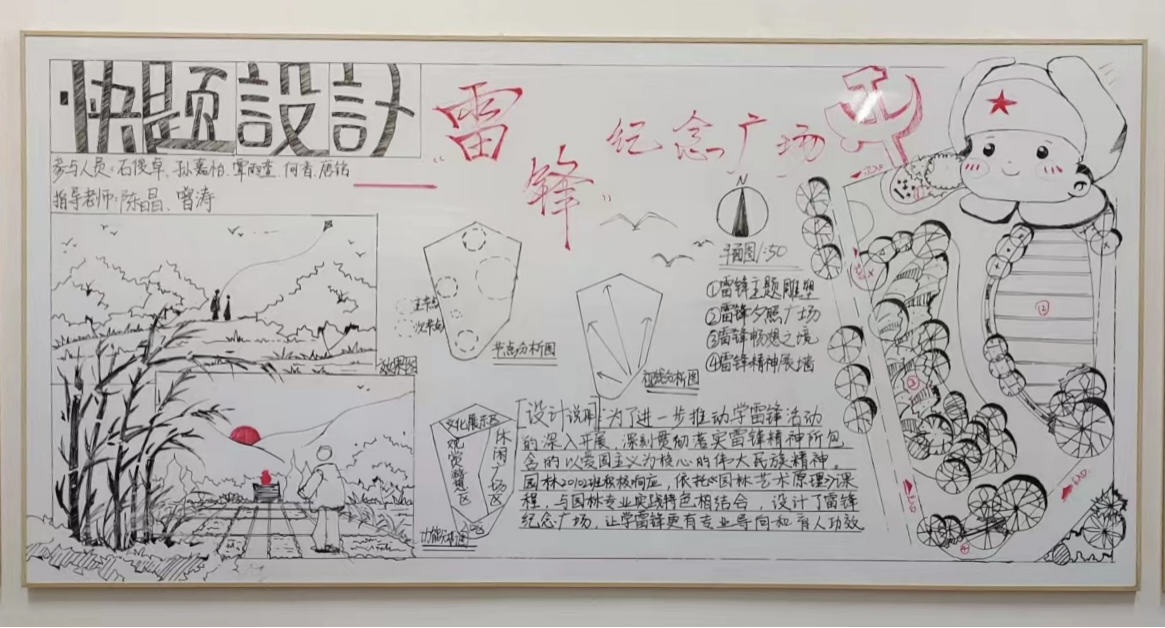 快题設計
参与人员:石俊卓、孙嘉怡、覃雨萱、何香、唐铭
指导老师:陈昌、曾涛
“雷锋”纪念广场
N
平面图1:50
①雷锋主题雕塑
②雷锋夕照广场
③雷锋畅想之境
④雷锋精神展墙
主节点
次节点
节点分析图
视线分析图
效果图
文化展示区
观赏畅想区
休闲广场区
功能分析图
设计说明 为了进一步推动学雷锋活动
的深入开展,深刻贯彻落实雷锋精神所包
含的以爱国主义为核心的伟大民族精神。
园林2102班积极响应,依托《园林艺术原理》课
程,与园林专业实践特色相结合,设计了雷锋
纪念广场,让学雷锋更有专业导向和育人功效
②
③
④